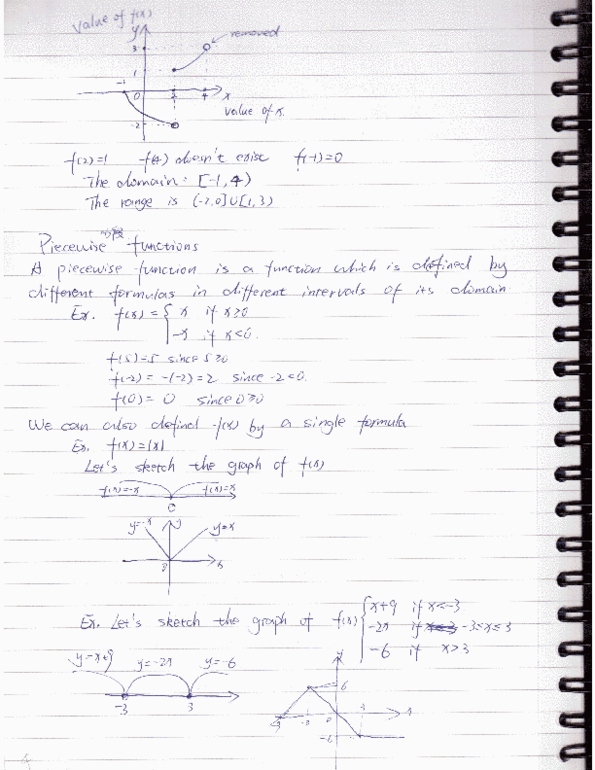 value of f(x)
y
removed
3
1
-1 0 2 4 x
value of x.
-2
f(2)=1 f(4) doesn't exist f(-1)=0
The domain: [-1,4)
The range is (-2,0]∪[1,3)
Piecewise functions
A piecewise function is a function which is defined by
different formulas in different intervals of its domain
Ex. f(x)={ x if x≥0
-x if x<0.
f(5)=5 since 5≥0
f(-2)= -(-2)=2 since -2<0.
f(0)= 0 since 0≥0
We can also defined f(x) by a single formula
Ex. f(x)=|x|
Let's sketch the graph of f(x)
f(x)=-x f(x)=x
0
y=-x y y=x
0 x
Ex. Let's sketch the graph of f(x) { x+9 if x<-3
-2x if -3≤x≤3
-6 if x>3
y=x+9 y=-2x y=-6
-3 3
y
6
-9 -3 0 3 x
-6